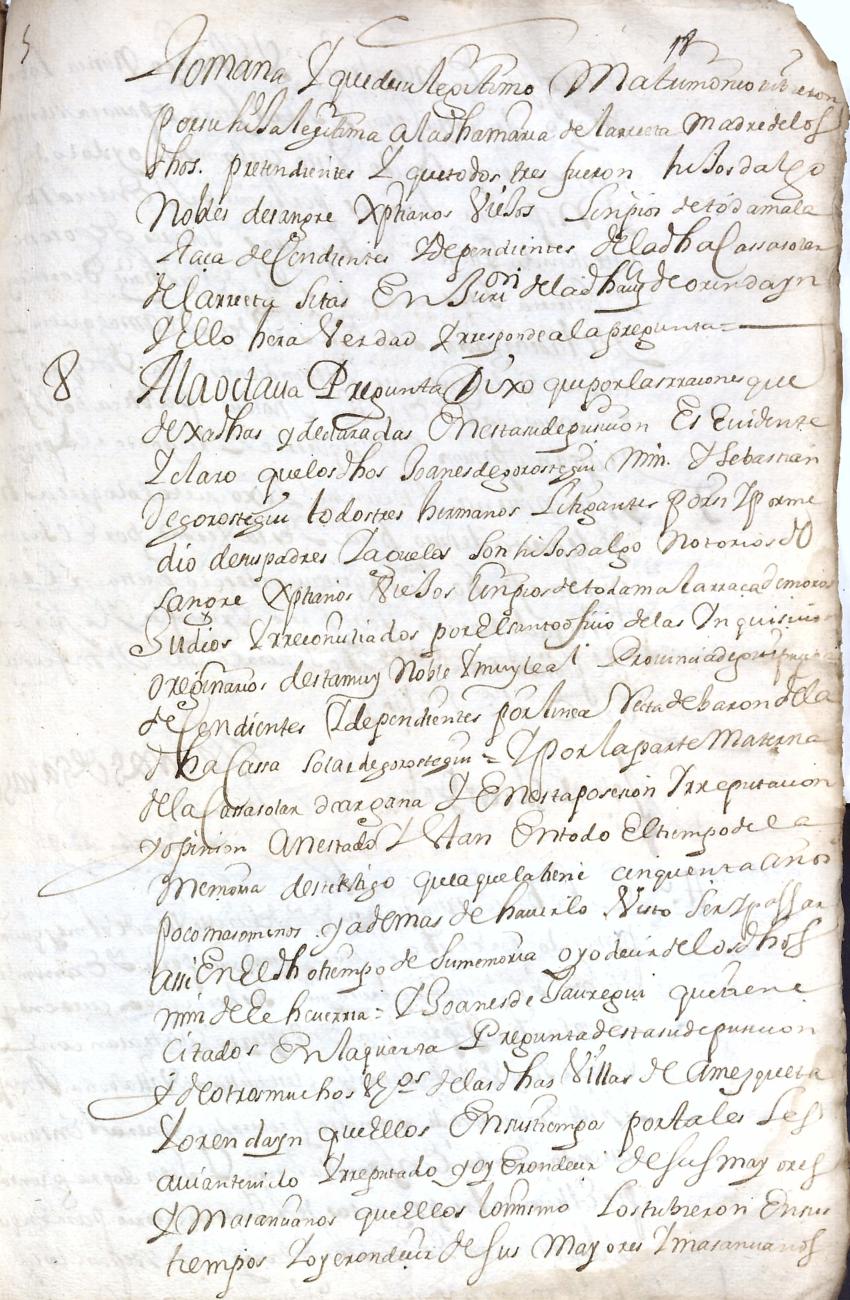 18
Romana Y que de su legitimo Matrimonio tubieron
por su hija legitima a la dha maria de larreeta madre de los
dhos. pretendientes Y que todos tres fueron hijos dalgo
Nobles de sangre Xptianos Viejos Linpios de toda mala
Raça deCendientes Y dependientes de la dha Cassa solar
de larreeta sitas En Juriōn de la dha Va de orendayn
Y Ello hera Verdad Y rresponde a la pregunta =
8 A la octaua Pregunta Dixo que por las rraçones que
dexa dhas y declaradas En esta su depusicion Es Euidente
Y claro que los dhos Joanes de gorostegui Min. Y Sebastian
de gorostegui todos tres hermanos Litigantes por si Y por me
dio de sus padres Y aguelos son hijos dalgo Notorios de
sangre Xptianos Viejos linpios de toda mala rraça de moros
Judios Y rreconciliados por El santo ofiuio de las Ynquisicio
oreginarios desta muy Noble Y muy leal Prouincia de guipuzcoa
deCendientes Y dependientes por linea Recta de baron de la
dha Cassa solar de gorostegui = Y por la parte Materna
de la Cassa solar de argana Y En esta posesion Y rreputacion
y opinion An estado Y Estan En todo El tiempo de la
memoria deste testigo que la que la tiene cinquenta años
poco mas o menos y ademas de hauerlo Visto ser Y passar
assi En El dho tiempo de su memoria oyo decir de los dhos
min de Echeuerria = Y Joanes de Jauregui que tiene
citados En la quarta Pregunta desta su depusicion
Y de otros muchos Vos de las dhas Villas de Amezqueta
Y orendayn que Ellos En sus tiempos por tales Les
auian tenido Y rreputado y oyeron decir de sus mayores
Y Mas ançianos que Ellos lo mismo Los tubieron En sus
tiempos Y oyeron decir de sus mayores Y mas ançianos